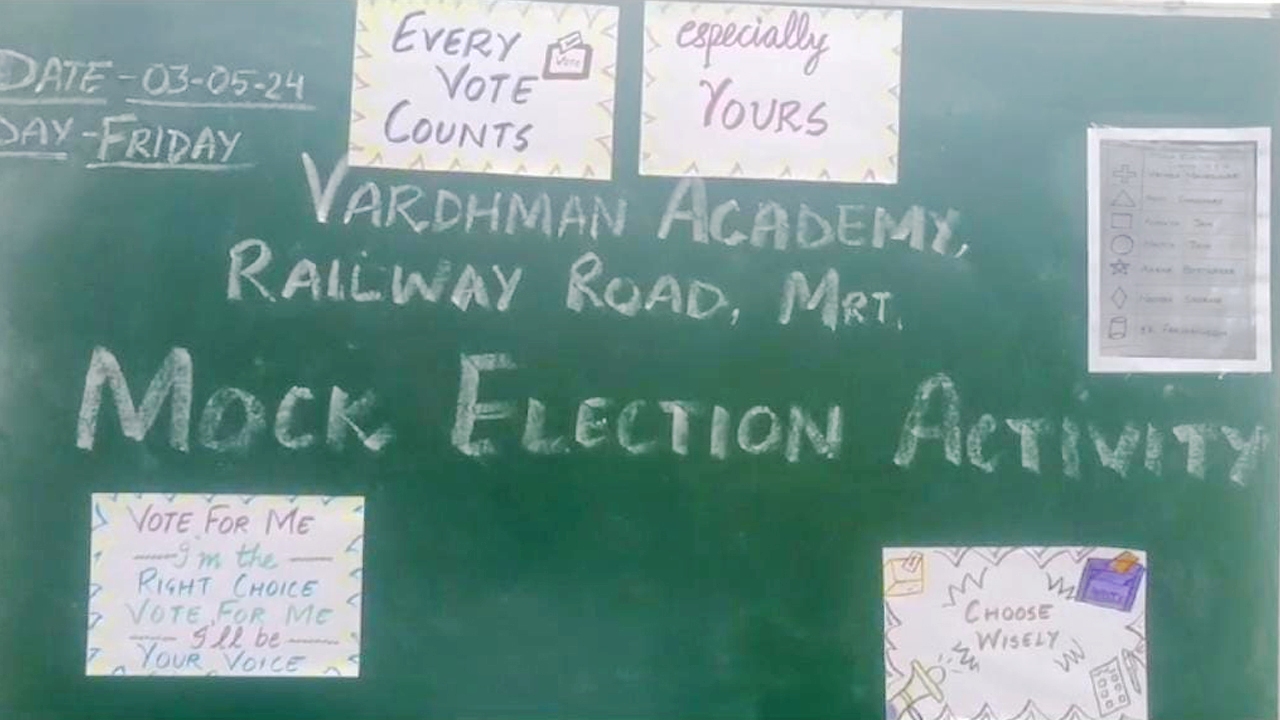 DATE - 03-05-24
DAY - FRIDAY
EVERY
VOTE
COUNTS
VOTE
especially
YOURS
VARDHMAN ACADEMY,
RAILWAY ROAD, MRT.
MOCK ELECTION ACTIVITY
VOTE FOR ME
I'm the
RIGHT CHOICE
VOTE FOR ME
I'll be
YOUR VOICE
CHOOSE
WISELY